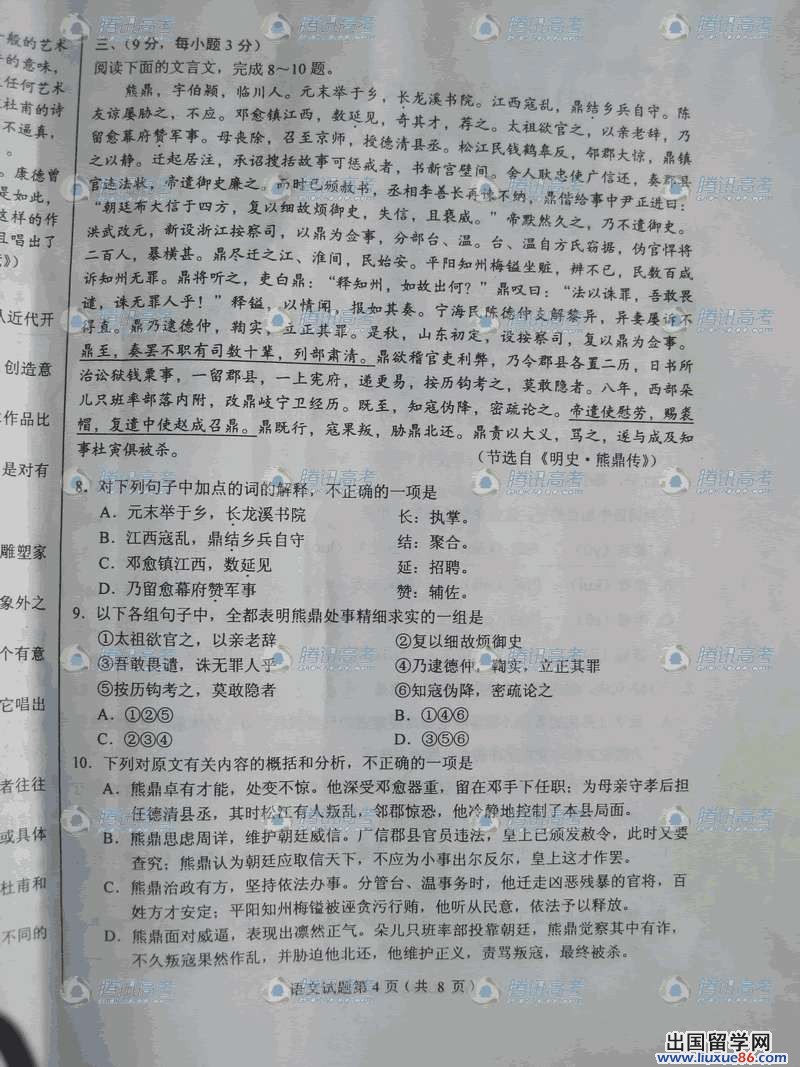 般的艺术
的意味，
任何艺术
杜甫的诗
不逼真，
。
康德曾
是如此，
这样的作
且唱出了
》）
从近代开
创造意
作品比
是对有
雕塑家
象外之
个有意
它唱出
者往往
或具体
杜甫和
不同的
三、（9分，每小题3分）
阅读下面的文言文，完成8～10题。
熊鼎，字伯颖，临川人。元末举于乡，长龙溪书院。江西寇乱，鼎结乡兵自守。陈
友谅屡胁之，不应。邓愈镇江西，数延见，奇其才，荐之。太祖欲官之，以亲老辞，乃
留愈幕府赞军事。母丧除，召至京师，授德清县丞。松江民钱鹤皋反，邻郡大惊，鼎镇
之以静。迁起居注，承诏搜括故事可惩戒者，书新宫壁间。舍人耿忠使广信还，奏郡县
官违法状，帝遣御史廉之。而时已颁赦书，丞相李善长再谏不纳，鼎偕给事中尹正进曰：
“朝廷布大信于四方，复以细故烦御史，失信，且亵威。”帝默然久之，乃不遣御史。
洪武改元，新设浙江按察司，以鼎为佥事，分部台、温。台、温自方氏窃据，伪官悍将
二百人，暴横甚。鼎尽迁之江、淮间，民始安。平阳知州梅镒坐赃，辨不已，民数百咸
诉知州无罪。鼎将听之，吏白鼎：“释知州，如故出何？”鼎叹曰：“法以诛罪，吾敢畏
谴，诛无罪人乎！”释镒，以情闻，报如其奏。宁海民陈德仲支解黎异，异妻屡诉不
得直。鼎乃逮德仲，鞠实，立正其罪。是秋，山东初定，设按察司，复以鼎为佥事。
鼎至，奏罢不职有司数十辈，列部肃清。鼎欲稽官吏利弊，乃令郡县各置二历，日书所
治讼狱钱粟事，一留郡县，一上宪府，递更易，按历钩考之，莫敢隐者。八年，西部朵
儿只班率部落内附，改鼎岐宁卫经历。既至，知寇伪降，密疏论之。帝遣使慰劳，赐裘
帽，复遣中使赵成召鼎。鼎既行，寇果叛，胁鼎北还。鼎责以大义，骂之，遂与成及知
事杜寅俱被杀。
（节选自《明史·熊鼎传》）
8．对下列句子中加点的词的解释，不正确的一项是
A．元末举于乡，长龙溪书院 长：执掌。
B．江西寇乱，鼎结乡兵自守 结：聚合。
C．邓愈镇江西，数延见 延：招聘。
D．乃留愈幕府赞军事 赞：辅佐。
9．以下各组句子中，全都表明熊鼎处事精细求实的一组是
①太祖欲官之，以亲老辞 ②复以细故烦御史
③吾敢畏谴，诛无罪人乎 ④乃逮德仲，鞠实，立正其罪
⑤按历钩考之，莫敢隐者 ⑥知寇伪降，密疏论之
A．①②⑤ B．①④⑥
C．②③④ D．③⑤⑥
10．下列对原文有关内容的概括和分析，不正确的一项是
A．熊鼎卓有才能，处变不惊。他深受邓愈器重，留在邓手下任职；为母亲守孝后担
任德清县丞，其时松江有人叛乱，邻郡惊恐，他冷静地控制了本县局面。
B．熊鼎思虑周详，维护朝廷威信。广信郡县官员违法，皇上已颁发赦令，此时又要
查究；熊鼎认为朝廷应取信天下，不应为小事出尔反尔，皇上这才作罢。
C．熊鼎治政有方，坚持依法办事。分管台、温事务时，他迁走凶恶残暴的官将，百
姓方才安定；平阳知州梅镒被诬贪污行贿，他听从民意，依法予以释放。
D．熊鼎面对威逼，表现出凛然正气。朵儿只班率部投靠朝廷，熊鼎觉察其中有诈，
不久叛寇果然作乱，并胁迫他北还，他维护正义，责骂叛寇，最终被杀。
语文试题第4页（共 8 页）
腾讯高考
出国留学网
www.liuxue86.com